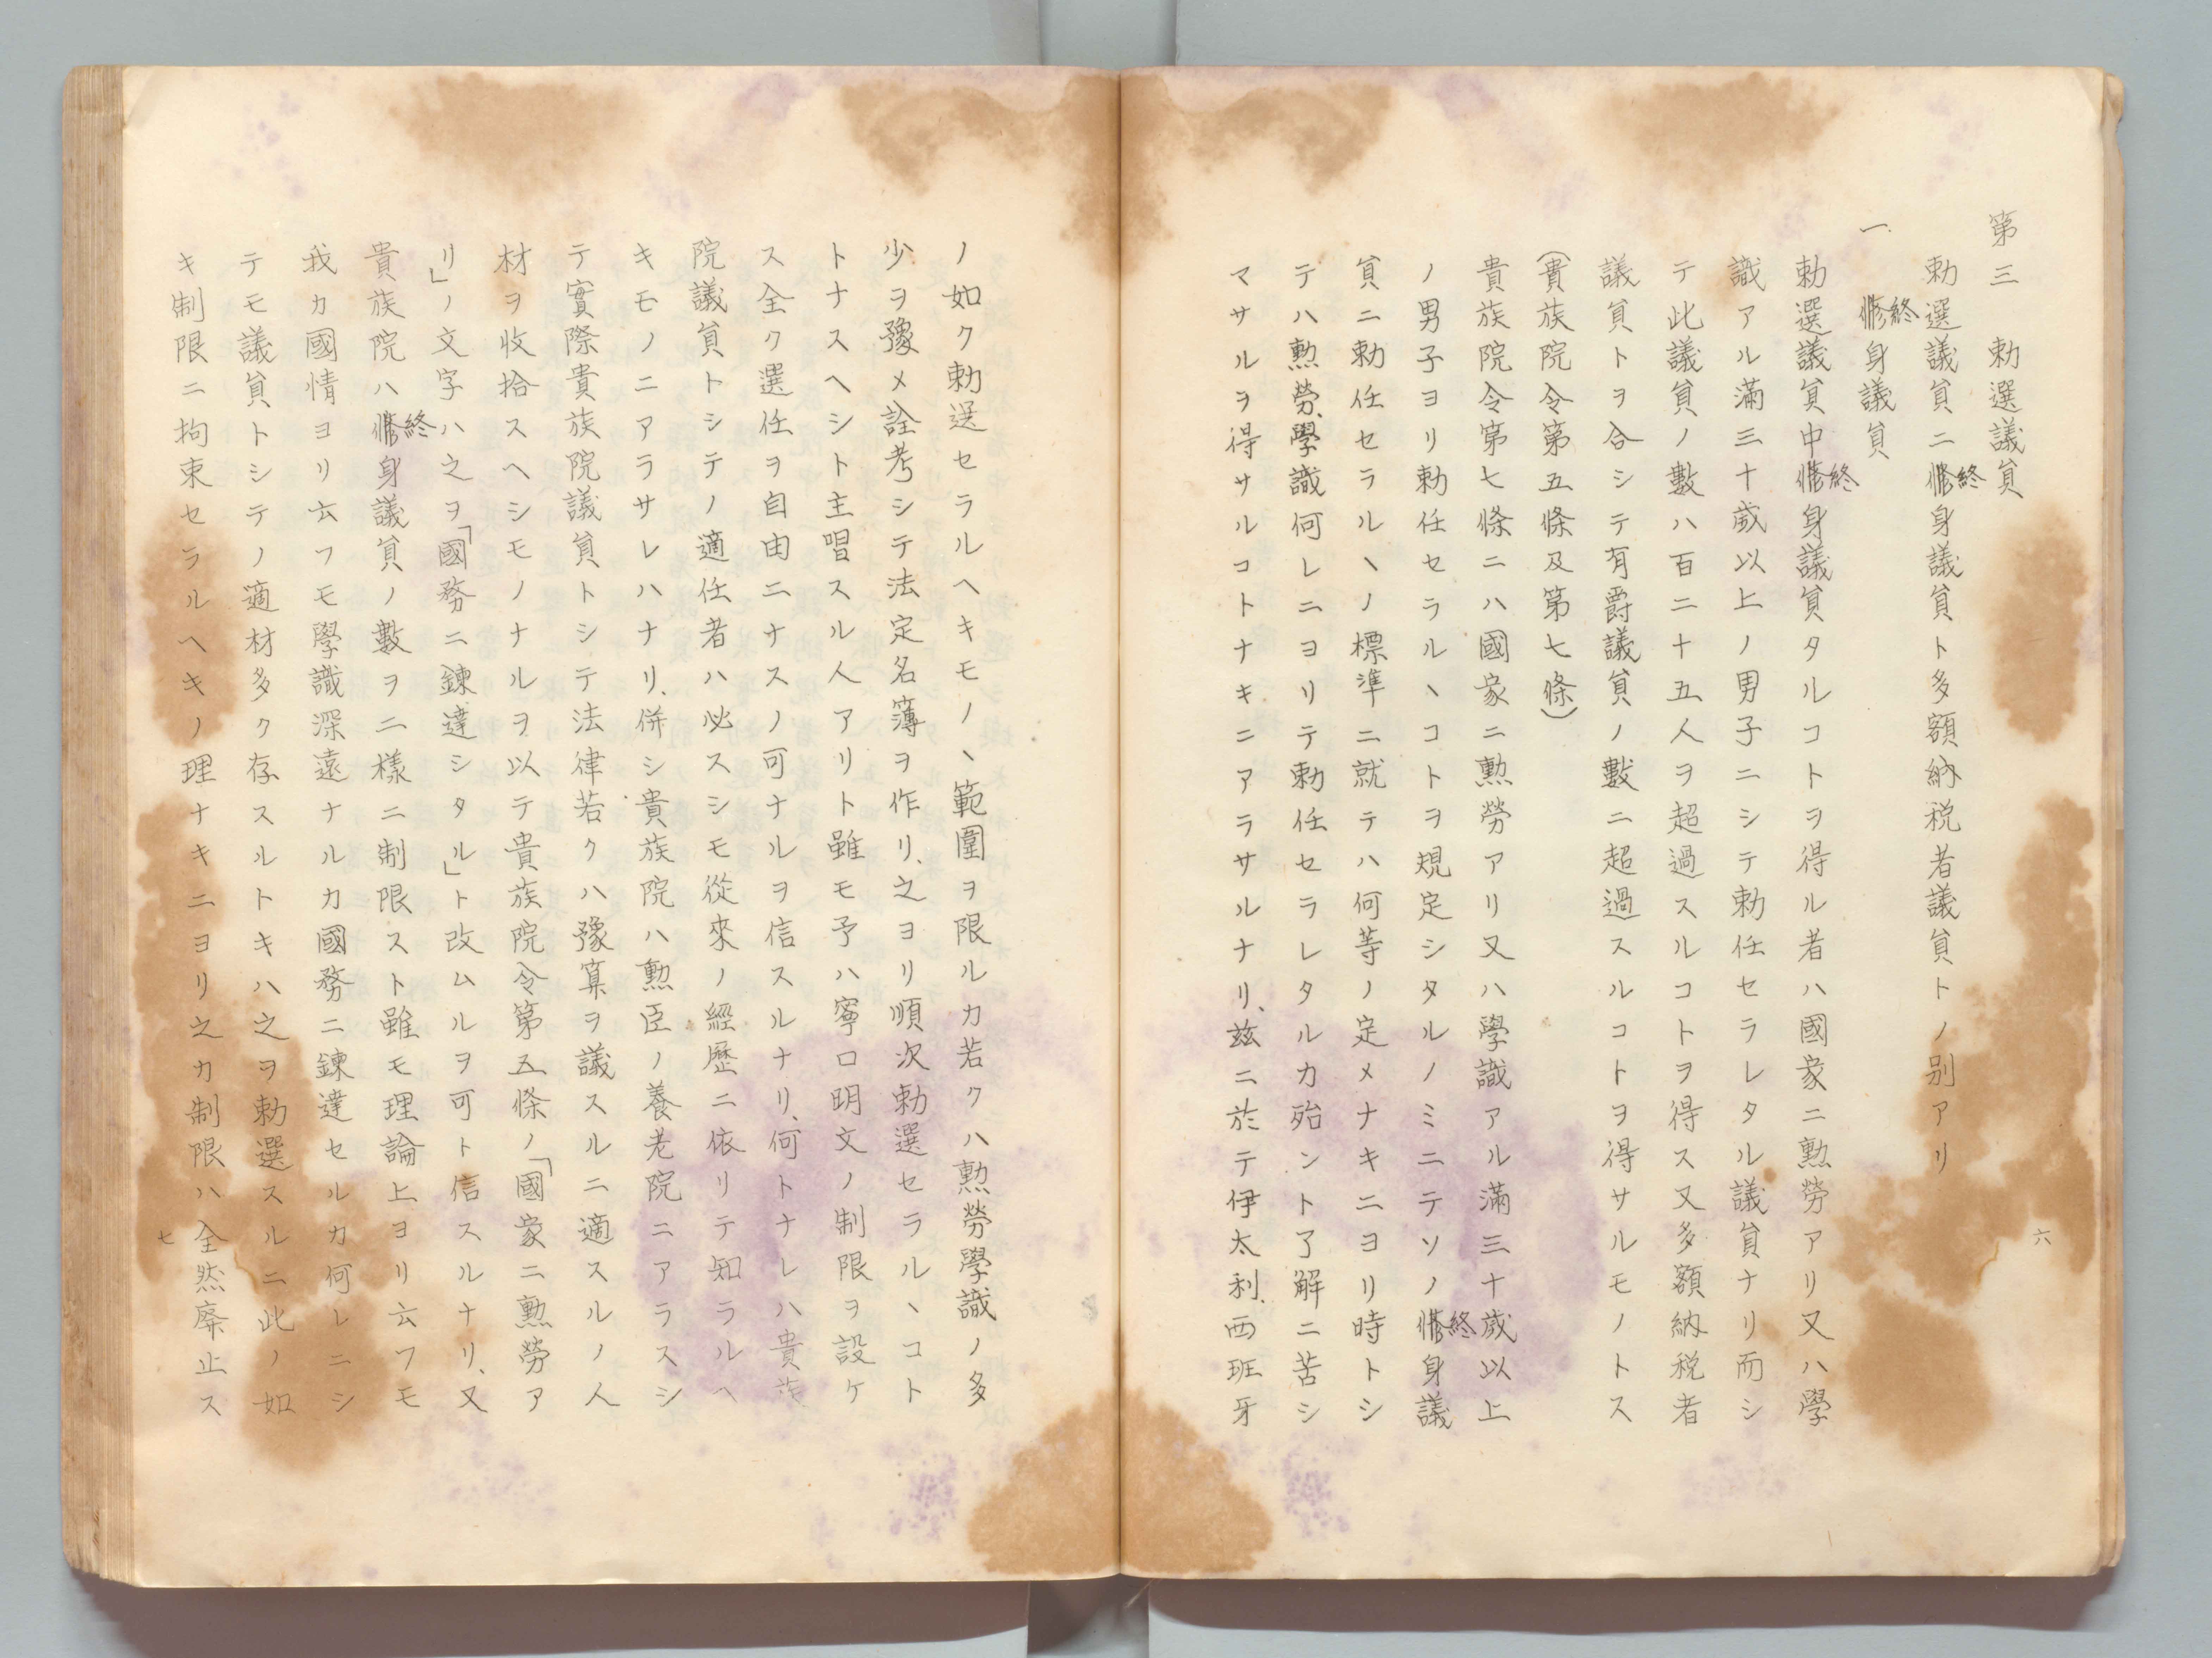 六
第三　勅選議員
勅選議員ニ終身議員ト多額納税者議員トノ別アリ
一、終身議員
勅選議員中終身議員タルコトヲ得ル者ハ國家ニ勲勞アリ又ハ學
識アル満三十歳以上ノ男子ニシテ勅任セラレタル議員ナリ而シ
テ此議員ノ數ハ百二十五人ヲ超過スルコトヲ得ス又多額納税者
議員トヲ合シテ有爵議員ノ數ニ超過スルコトヲ得サルモノトス
（貴族院令第五條及第七條）
貴族院令第七條ニハ國家ニ勲勞アリ又ハ學識アル滿三十歳以上
ノ男子ヨリ勅任セラルヽコトヲ規定シタルノミニテソノ終身議
員ニ勅任セラルヽノ標準ニ就テハ何等ノ定メナキニヨリ時トシ
テハ勲勞、學識何レニヨリテ勅任セラレタルカ殆ント了解ニ苦シ
マサルヲ得サルコトナキニアラサルナリ、玆ニ於テ伊太利、西班牙
ノ如ク勅選セラルヘキモノヽ範圍ヲ限ルカ若クハ勲勞學識ノ多
少ヲ豫メ詮考シテ法定名簿ヲ作リ、之ヨリ順次勅選セラルヽコト
トナスヘシト主唱スル人アリト雖モ予ハ寧ロ明文ノ制限ヲ設ケ
ス全ク選任ヲ自由ニナスノ可ナルヲ信スルナリ、何トナレハ貴族
院議員トシテノ適任者ハ必スシモ從來ノ經歷ニ依リテ知ラルヘ
キモノニアラサレハナリ、併シ貴族院ハ勲臣ノ養老院ニアラスシ
テ實際貴族院議員トシテ法律若クハ豫算ヲ議スルニ適スルノ人
材ヲ收拾スヘシモノナルヲ以テ貴族院令第五條ノ「國家ニ勲勞ア
リ」ノ文字ハ之ヲ「國務ニ鍊達シタル」ト改ムルヲ可ト信スルナリ、又
貴族院ハ終身議員ノ數ヲ二樣ニ制限スト雖モ理論上ヨリ云フモ
我カ國情ヨリ云フモ學識深遠ナルカ國務ニ鍊達セルカ何レニシ
テモ議員トシテノ適材多ク存スルトキハ之ヲ勅選スルニ此ノ如
キ制限ニ拘束セラルヘキノ理ナキニヨリ之カ制限ハ全然廃止ス
七